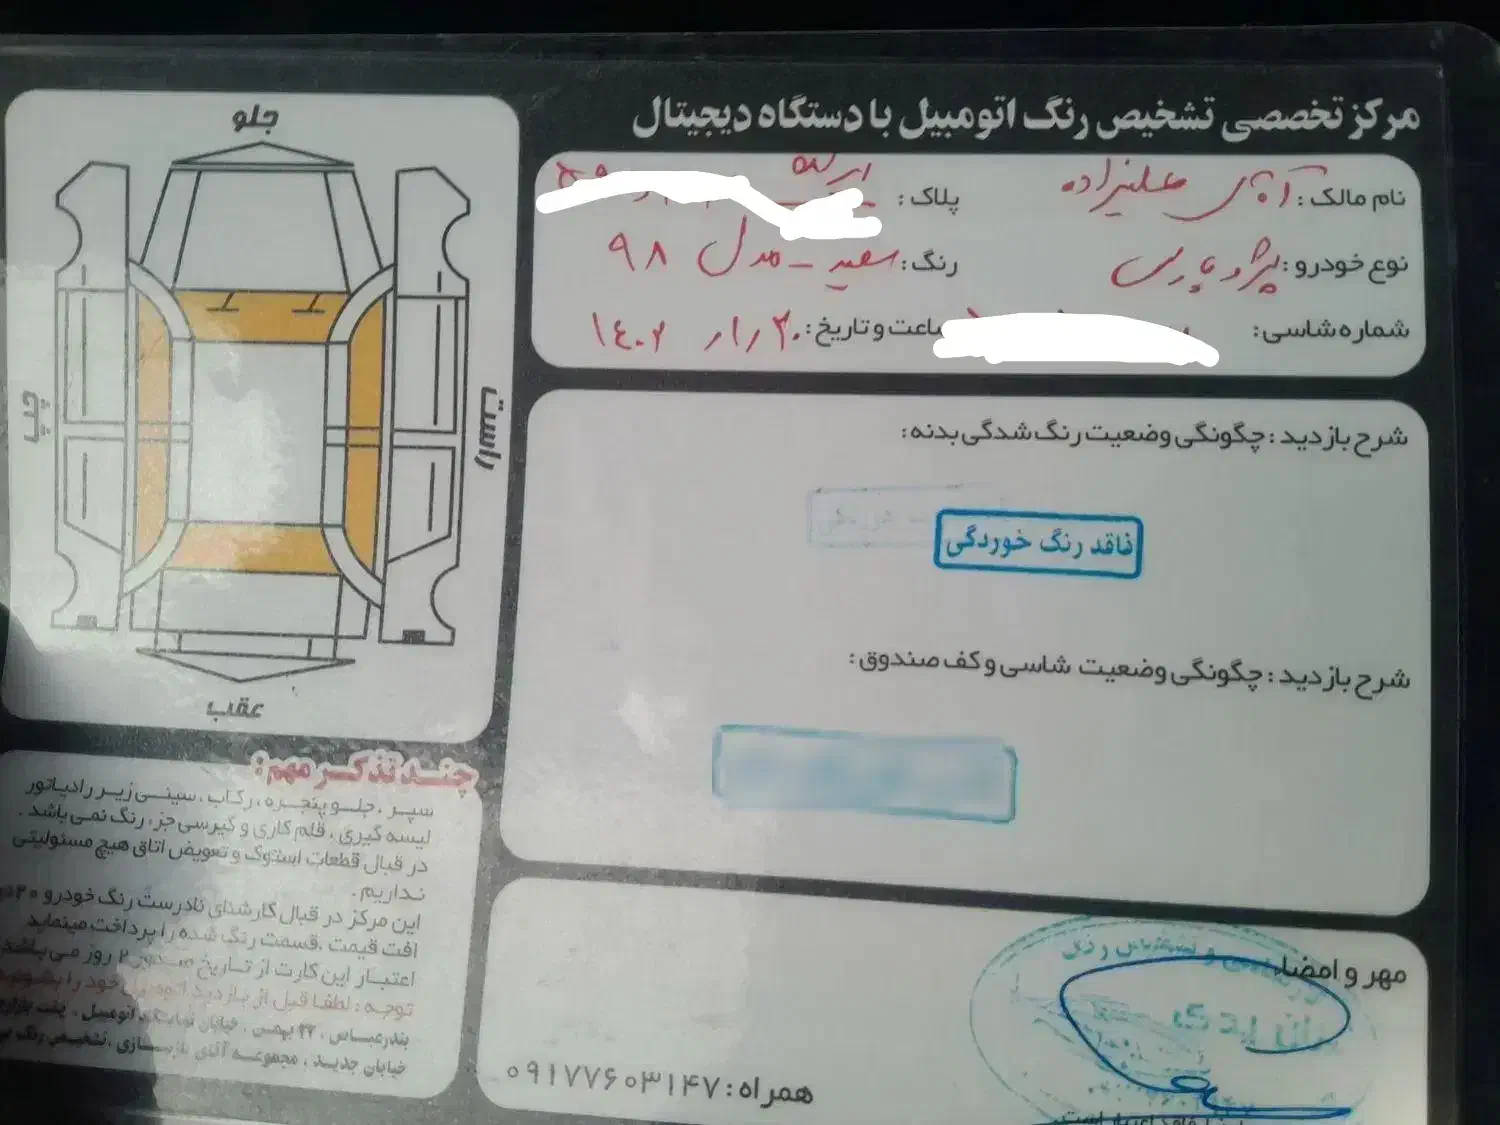 مرکز تخصصی تشخیص رنگ اتومبیل با دستگاه دیجیتال
نام مالک: آقای علیزاده پلاک:
نوع خودرو: پژو پارس رنگ: سفید - مدل ۹۸
شماره شاسی: ساعت و تاریخ:
شرح بازدید: چگونگی وضعیت رنگ شدگی بدنه:
فاقد رنگ خوردگی
شرح بازدید: چگونگی وضعیت شاسی و کف صندوق:
مهر و امضا
همراه: ۰۹۱۷۷۶۰۳۱۴۷
جلو
چپ
راست
عقب
چند تذکر مهم:
سپر، جلو پنجره، رکاب، سینی زیر رادیاتور
لیسه گیری، قلم کاری و گیرسی جزء رنگ نمی باشد.
در قبال قطعات استوک و تعویض اتاق هیچ مسئولیتی
نداریم.
این مرکز در قبال کارشنای نادرست رنگ خودرو ۲۰
افت قیمت، قسمت رنگ شده را پرداخت مینماید
اعتبار این کارت از تاریخ صدور ۲ روز می باشد
توجه: لطفا قبل از بازدید اتومبیل خود را بشویید
بندرعباس، ۲۲ بهمن، خیابان نمایشگاه اتومبیل،
خیابان جدید، مجموعه آقای بازسازی، تشخیص رنگ